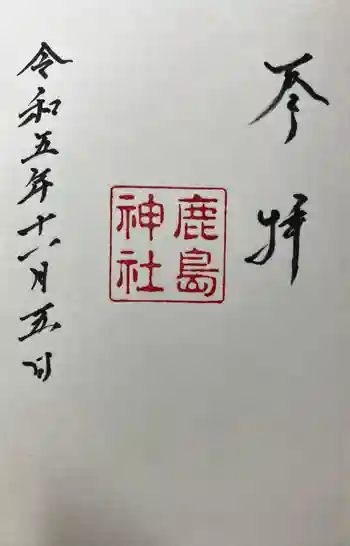 参拝
鹿島
神社
令和五年十一月五日